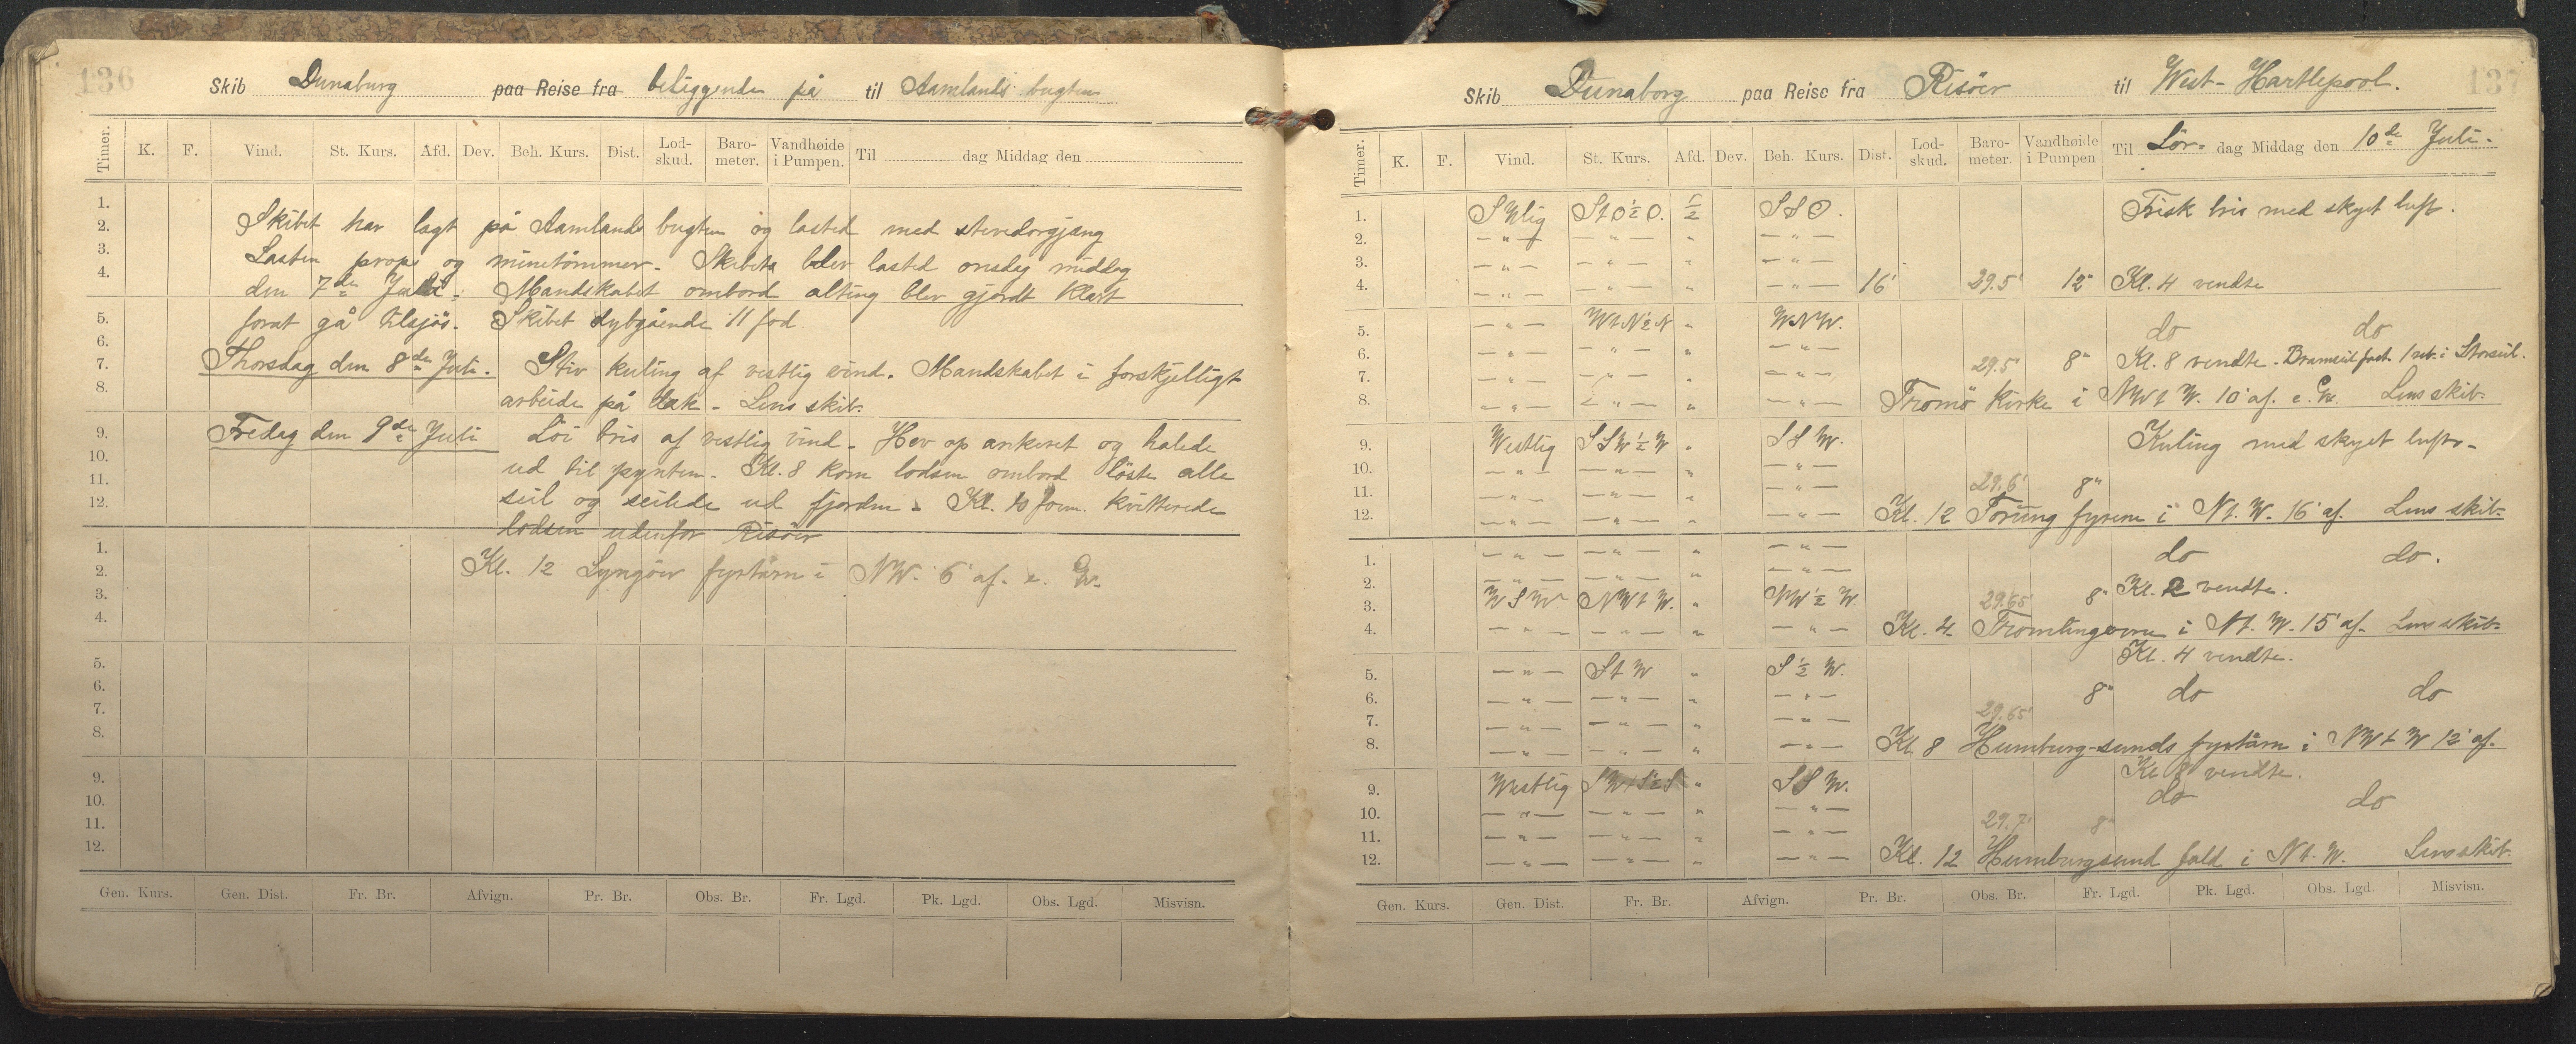 136
Skib Dunaburg paa Reise fra beliggende på til Aamlands bugten
Timer. K. F. Vind. St. Kurs. Afd. Dev. Beh. Kurs. Dist. Lod-skud. Baro-meter. Vandhøide i Pumpen. Til dag Middag den
1.
2. Skibet har lagt på Aamlands bugten og lasted med stevedorgjæng
3. Lasten props og minetömmer. Skibets blev lasted onsdag middag
4. den 7de Juli. Mandskabet ombord alting blev gjordt klart
5. forat gå tilsjös. Skibet dybgående 11 fod.
6.
7. Thorsdag den 8de Juli. Stiv kuling af vestlig vind. Mandskabet i forskjelligt
8. arbeide på dæk. Lens skib.
9. Fredag den 9de Juli Löi bris af vestlig vind. Hev op ankeret og halede
10. ud til pynten. Kl. 8 kom lodsen ombord löste alle
11. seil og seilede ud fjorden. Kl. 10 form. kvitterede
12. lodsen udenfor Risöer
1.
2. Kl. 12 Lyngöer fyrtårn i NW. 6' af. e. G.
3.
4.
5.
6.
7.
8.
9.
10.
11.
12.
Gen. Kurs. Gen. Dist. Fr. Br. Afvign. Pr. Br. Obs. Br. Fr. Lgd. Pk. Lgd. Obs. Lgd. Misvisn.
137
Skib Dunaborg paa Reise fra Risöer til West-Hartlepool.
Timer. K. F. Vind. St. Kurs. Afd. Dev. Beh. Kurs. Dist. Lod-skud. Baro-meter. Vandhøide i Pumpen Til Lör- dag Middag den 10de Juli.
1. SWlig StO½O. ½ SSO. Frisk bris med skyet luft.
2. — " — — " — " — " —
3. — " — — " — " — " —
4. — " — — " — " — " — 16' 29.5' 12" Kl. 4 vendte
5. — " — WtN½N " WNW. do do
6. — " — — " — — " — 29.5' 8" Kl. 8 vendte. Bramseil fast 1 reb. i Storseil.
7. — " — — " — " — " —
8. — " — — " — " — " — Tromö Kirke i NWtW. 10' af. e. G. Lens skib.
9. Westlig SSW½W " SSW. Kuling med skyet luft.
10. — " — — " — " — " —
11. — " — — " — " — " — 29.6' 8"
12. — " — — " — " — " — Kl. 12 Torung fyrene i Nt.W. 16' af. Lens skib.
1. — " — — " — " — " — do do.
2. — " — — " — " — " — Kl. 2 vendte.
3. WSW NWtW. " NW½W. 29.65' 8"
4. — " — — " — " — " — Kl. 4. Tromlingerne i Nt.W. 15' af. Lens skib.
Kl. 4 vendte.
5. — " — StW " S½W.
6. — " — — " — " — " — 8" do do
7. — " — — " — " — " — 29.65'
8. — " — — " — " — " — Kl. 8 Humburg-sunds fyrtårn i NWtW 12' af.
Kl 8 vendte.
9. Westlig " SSW. do do
10. — " — — " — " — " —
11. — " — — " — " — " — 29.7' 8"
12. — " — — " — " — " — Kl. 12 Humburgsund fald i Nt.W. Lens skib.
Gen. Kurs. Gen. Dist. Fr. Br. Afvign. Pr. Br. Obs. Br. Fr. Lgd. Pk. Lgd. Obs. Lgd. Misvisn.